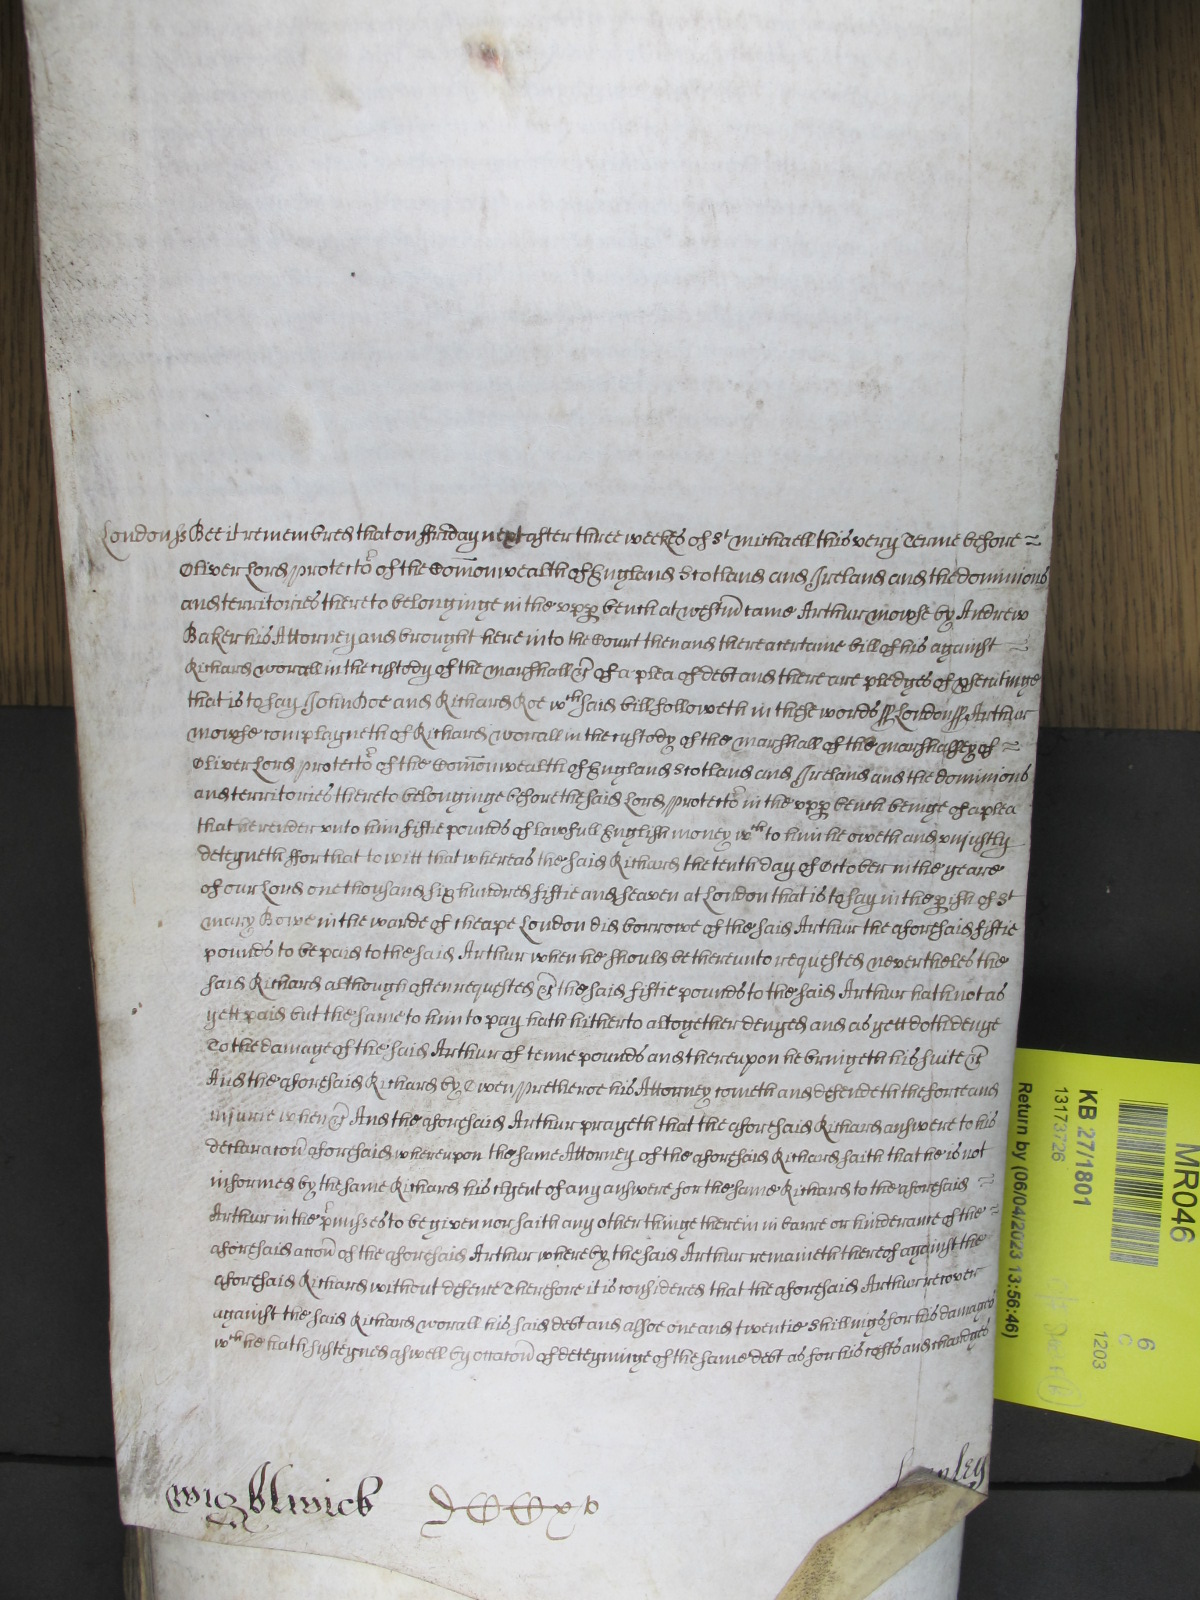 London ss Bee it remembred that on ffriday next after three weekes of St Michaell this very Terme before
Oliver Lord Protector of the Com̅onwealth of England Scotland and Ireland and the dominions
and territories thereto belonginge in the upp bench at westm̅ came Arthur Mowse by Andrew
Baker his Attorney and brought here into the Court then and there a certaine bill of his against
Richard Worall in the custody of the marshall &c of a plea of debt and there are pledges of psecutinge
that is to say John Doe and Richard Roe wch said bill followeth in these words ss London ss Arthur
Mowse complayneth of Richard Worall in the custody of the marshall of the marshalsey of
Oliver Lord Protector of the Com̅onwealth of England Scotland and Ireland and the dominions
and territories thereto belonginge before the said Lord Protector in the upp bench beinge of a plea
that he render unto him fiftie pounds of lawfull English money wch to him he oweth and unjustly
deteyneth ffor that to witt that whereas the said Richard the tenth day of October in the yeare
of our Lord one thousand six hundred fiftie and seaven at London that is to say in the pish of St
Mary Bowe in the warde of Cheape London did borrowe of the said Arthur the aforesaid fiftie
pounds to be paid to the said Arthur when he should be thereunto requested nevertheles the
said Richard although often requested &c the said fiftie pounds to the said Arthur hath not as
yett paid but the same to him to pay hath hitherto altogether denyed and as yett doth denye
To the damage of the said Arthur of tenne pounds and thereupon he bringeth his suite &c
And the aforesaid Richard by Owen Pretheroe his Attorney cometh and defendeth the force and
injurie when &c And the aforesaid Arthur prayeth that the aforesaid Richard answere to his
declarac̅on aforesaid whereupon the same Attorney of the aforesaid Richard saith that he is not
informed by the same Richard his clyent of any answere for the same Richard to the aforesaid
Arthur in the p̅misses to be given nor saith any other thinge therein in barre or hinderance of the
aforesaid acc̅on of the aforesaid Arthur whereby the said Arthur remaineth thereof against the
aforesaid Richard without defence Therefore it is considered that the aforesaid Arthur recover
against the said Richard Worall his said debt and alsoe one and twentie shillings for his damages
wch he hath susteyned aswell by occac̅on of deteyninge of the same debt as for his costs and chardges
MR046
KB 27/1801
13173726
Return by (06/04/2023 13:56:46)
6
C
1203